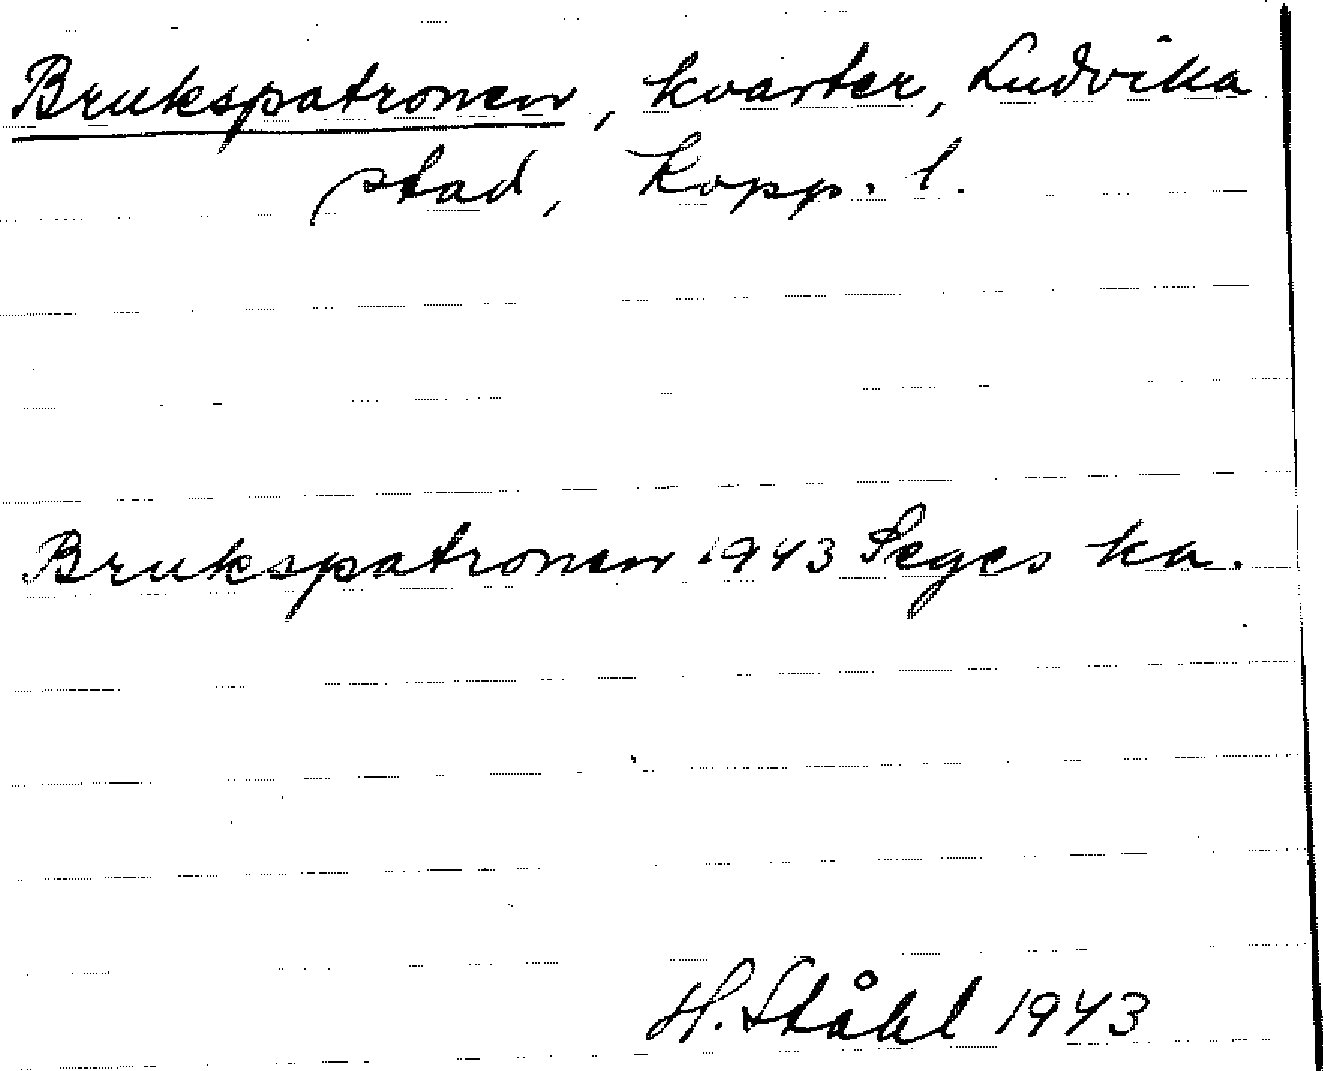 Brukspatronen, kvarter, Ludvika
stad, Kopp. l.
Brukspatronen 1943 Seges ka.
H. Ståhl 1943